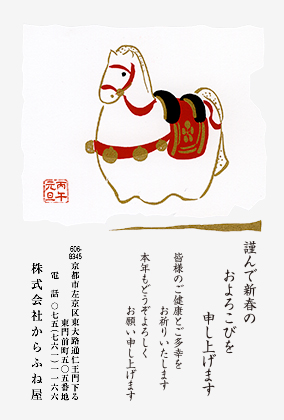 丙午
元旦
謹んで新春の
およろこびを
申し上げます
皆様のご健康とご多幸を
お祈りいたします
本年もどうぞよろしく
お願い申し上げます
606-
8345
京都市左京区東大路通仁王門下る
東門前町五〇五番地
電話〇七五(七六一)一一六六
株式会社からふね屋